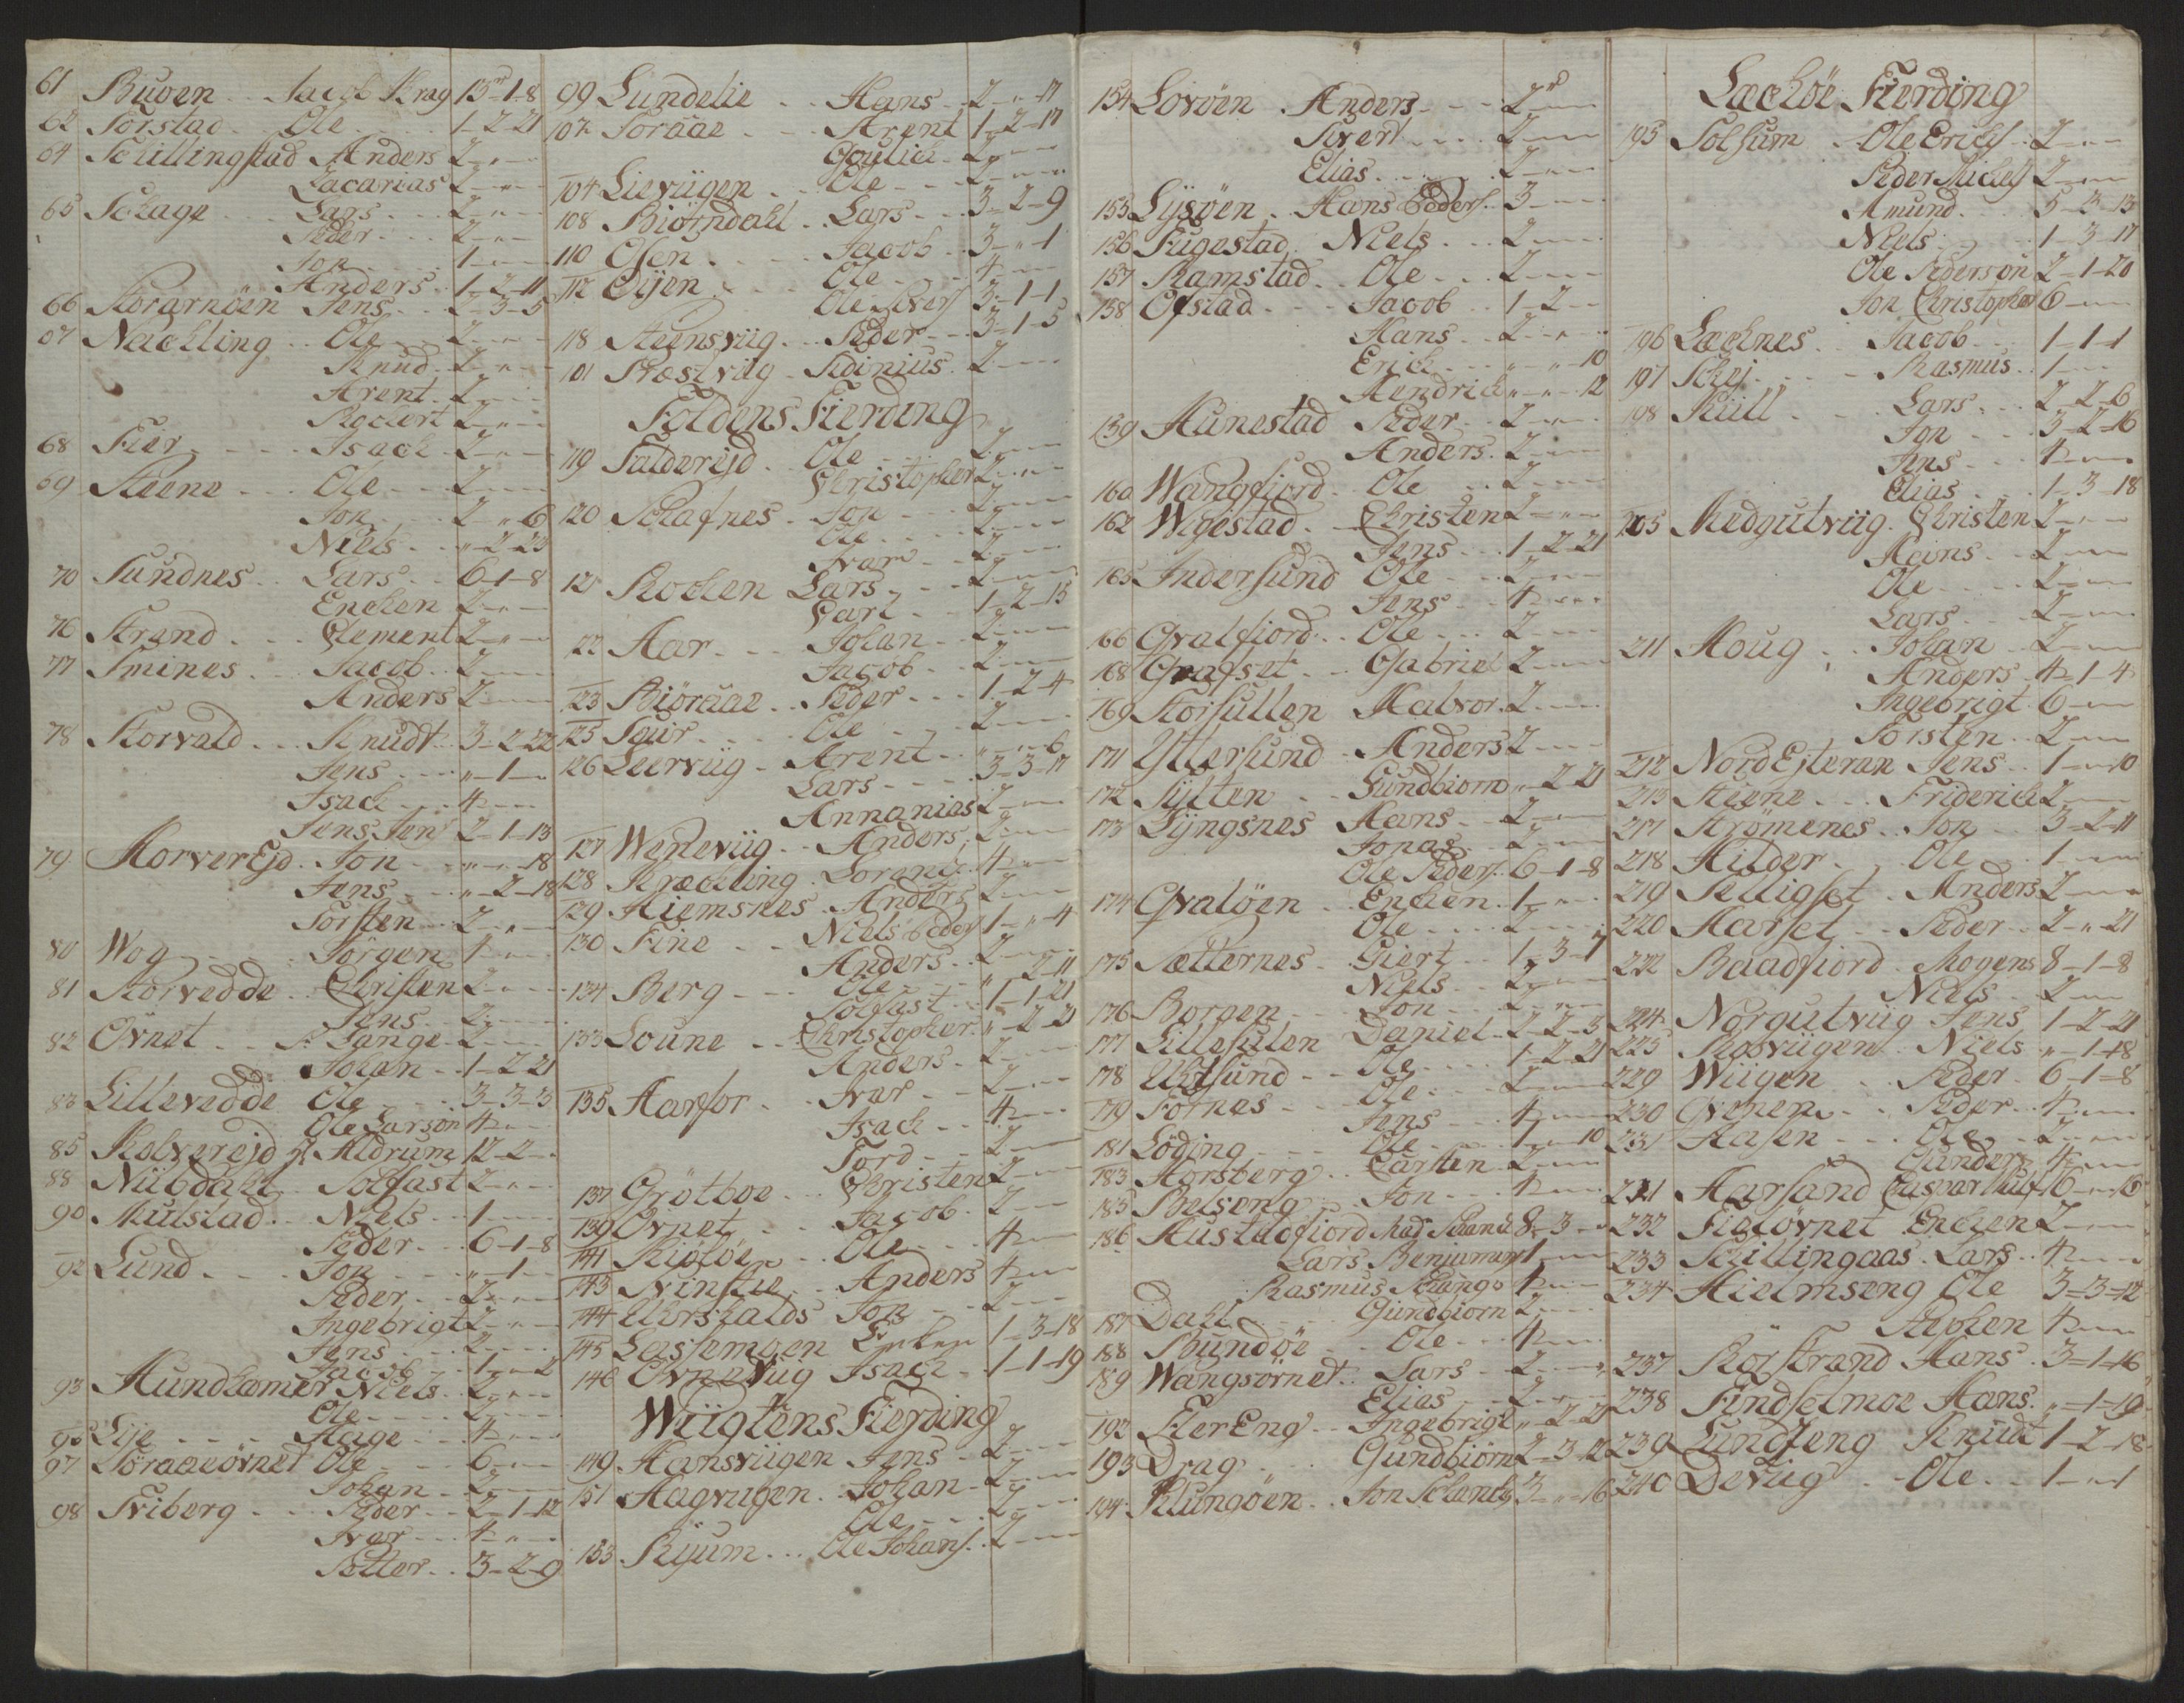 61 Buven .. Jacob Krag 13 m-1-8
62 Torstad .. Ole .. 1-2-21
64 Schillingstad Anders 2 - „ -
Zacarias 2 - „ -
65 Schage .. Lars .. 2 - „ -
Peder .. 2 - „ -
Jon .. 1 - „ -
Anders .. 1-2-11
66 Storarnöen Jens .. 2-3-5
67 Nachling .. Ole .. 2 - „ -
Knud .. 2 - „ -
Arent .. 2 - „ -
Rochert 2 - „ -
68 Fier .. Isach .. 2 - „ -
69 Steene .. Ole .. 2 - „ -
Jon .. 2 - „ 6
Niels .. „ -2-23
70 Sundnes .. Lars .. 6-1-8
Enchen 2 - „ -
76 Strand .. Clement 2 - „ -
77 Smines .. Jacob .. 2 - „ -
Anders 2 - „ -
78 Storvald .. Knudt .. 3-2-22
Jens .. „ -1-
Isach .. 4 - „ -
Jens Jens 2-1-13
79 Horver Ejd .. Jon .. „ - „ -18
Jens .. „ -2-18
Torsten .. 2 - „ -
80 Wog .. Jörgen 1 - „ -
81 Storvedde .. Christen 2 - „ -
Jens .. 2 - „ -
82 Övnet .. Tange 2 - „ -
Johan .. 1-2-21
83 Lillevedde Ole .. 3-3-3
Ole Larson 4 - „ -
85 Kolverejd Hr Aldrum 12-2-
88 Nubdahl .. Tolfast 2 - „ -
90 Mulstad .. Niels .. 1 - „ -
Peder .. 6-1-8
92 Lund .. Jon .. „ -1-
Peder .. 2 - „ -
Ingebrigt 2 - „ -
Jens .. 2 - „ -
Jacob .. 1 - „ -2
93 Hundhamer Niels .. 2 - „ -
Ole .. 2 - „ -
95 Eije .. Helge .. 4 - „ -
97 Toraaeövnet Ole .. 6 - „ -
Johan .. 2 - „ -
98 Sviberg .. Peder .. 2-1-12
Ivar .. 4 - „ -
Petter .. 3-2-9
99 Lundelie .. Hans .. 2 - „ -17
102 Toraae .. Arent 1-2-17
Goulich .. 2 - „ -
104 Lieviigen .. Ole .. 2 - „ -
108 Biörndahl .. Lars .. 3-2-9
110 Olsen .. Jacob .. 3 - „ -1
112 Eijen .. Ole .. 4 - „ -
Ole Ivers 3-1-1
118 Steensviig .. Peder .. 3-1-5
101 Præstviig .. Sidinius .. 2 - „ -
Foldens Fierding
119 Falderejd .. Ole .. 2 - „ -
Christopher 2 - „ -
120 Schafnes .. Jon .. 2 - „ -
Ole .. 2 - „ -
Ivar .. 2 - „ -
121 Kochen Lars .. 2 - „ -
Carl .. 1-2-15
122 Aar .. Johan .. 2 - „ -
Jacob .. 2 - „ -
123 Biöraae .. Peder .. 1-2-4
125 Sour .. Ole .. 2 - „ -
126 Leerviig .. Arent .. „ - „ -6
Lars .. 3-3-17
Annanias 2 - „ -
127 Weneviig .. Anders 2 - „ -
128 Kræchling .. Lorentz .. 4 - „ -
129 Hiemsnes .. Anders 2 - „ -
130 Fine .. Niels Peders 1 - „ -4
Anders .. 2 - „ -
134 Berg .. Ole .. „ -2-11
Tolfast .. 1-1-21
133 Loune .. Christopher .. „ -2-21
Anders .. 2 - „ -
135 Aarfor .. Ivar .. 2 - „ -
Isach .. 4 - „ -
Tord .. 2 - „ -
137 Grötboe .. Christen 2 - „ -
139 Övnet .. Jacob .. 2 - „ -
141 Kiölöe .. Ole .. 4 - „ -
143 Ninstie .. Anders 4 - „ -
144 Ulvshalds Jon .. 2 - „ -
145 Lassemoen Enchen 1-3-18
146 Ovneviig Isach .. 1-1-19
Wiigtens Fierding
149 Hansviigen Jens .. 2 - „ -
151 Hagviigen .. Johan .. 2 - „ -
Ole .. 2 - „ -
153 Ryum .. Ole Johans .. 2 - „ -
154 Lovöen .. Anders .. 2 m - „ -
Iver .. 2 - „ -
Elias .. 2 - „ -
155 Lysöen .. Hans Peders .. 3 - „ -
156 Fugestad .. Niels .. 2 - „ -
157 Ramstad .. Ole .. 2 - „ -
158 Ofstad .. Jacob .. 1-2-
Hans .. 2 - „ -
Erich .. „ - „ -10
Hendrich „ - „ -12
159 Hunestad Peder .. 2 - „ -
Anders .. 2 - „ -
160 Wangfiord .. Ole .. 2 - „ -
162 Wigestad .. Christen 2 - „ -
Jens .. 1-2-21
165 Indersund Ole .. 2 - „ -
Jens .. 4 - „ -
166 Qvalfiord .. Ole .. 2 - „ -
168 Grafset .. Gabriel 2 - „ -
169 Storsullen Halvor .. 2 - „ -
171 Yttersund .. Anders 2 - „ -
172 Sylten .. Gundbiorn „ -2-21
173 Lyngsnes Hans .. 2 - „ -
Jonas .. 2 - „ -
Ole Peders .. 6-1-8
174 Qvalöen .. Enchen .. 1 - „ -
Ole .. 2 - „ -
175 Sætternes .. Giert .. 1-3-7
Niels .. 2 - „ -
176 Borgen .. Jon .. 2 - „ -
177 Lillesulen Daniel .. 2-2-3
178 Ulvsund .. Ole .. 1-2-21
Ole .. 2 - „ -
179 Fornes .. Jens .. 4 - „ -
181 Löding .. Ole .. 1 - „ -10
183 Horsberg .. Carsten .. 2 - „ -
185 Belseng .. Jon .. 4 - „ -
186 Hustadfiord Mad. Schanch 8-3-
Lars Benjamins 1 - „ -
Rasmus Schang .. 4 - „ -
187 Dahl .. Gundbiorn 2 - „ -
188 Bundöe .. Ole .. 4 - „ -
189 Wangsövnet .. Lars .. 2 - „ -
Elias .. 2 - „ -
192 FlerEng .. Ingebrigt „ -2-21
193 Drag .. Gundbiorn 2-3-12
194 Klungöen .. Jon Schanch 3 - „ -16
Lachöe Fierding
195 Solsum .. Ole Erichs .. 2 - „ -
Peder Michels 2 - „ -
Amund .. 5-3-13
Niels .. 1-3-17
Ole Pedersön 2-1-20
Jon Christophers 6 - „ -
196 Lachnes .. Jacob .. 1-1-1
197 Schej .. Rasmus .. 1 - „ -
198 Kiill .. Lars .. 2-2-6
Jon .. 3-2-16
Jens .. 4 - „ -
Elias .. 1-3-18
205 Medgulviig .. Christen 2 - „ -
Heins .. 2 - „ -
Ole .. 2 - „ -
Lars .. 2 - „ -
211 Houg .. Johan .. 2 - „ -
Anders .. 4-1-4
Ingebrigt .. 6 - „ -
Torsten .. 2 - „ -
212 NordEjteran Jens .. 1 - „ -10
213 Steene .. Friderich 2 - „ -
217 Strömenes .. Jon .. 3-2-11
218 Hilder .. Ole .. 1 - „ -
219 Selligset .. Anders 2 - „ -
220 Harset .. Peder .. 2 - „ -21
222 Baadfiord .. Mogens 8-1-8
Niels .. 2 - „ -
224 Nörgulviig Jens 1-2-21
225 Schroviigen .. Niels „ -1-18
229 Wiigen .. Peder .. 6-1-8
230 Qvenen .. Peder .. 4 - „ -
231 Aasen .. Ole .. 2 - „ -
Gunder .. 4 - „ -
241 Aarsand Caspar 16 - „ -
232 Fieldövnet Enchen 2 - „ -
233 Schillingaas .. Lars .. 4 - „ -
234 Hielmseng Ole 3-3-12
Stephen 4 - „ -
237 Röistrand Hans .. 3-1-16
238 Findselmoe Hans .. „ -1-19
239 Lundseng Knudt 1-2-18
240 Deviig .. Ole .. 1 - „ -1